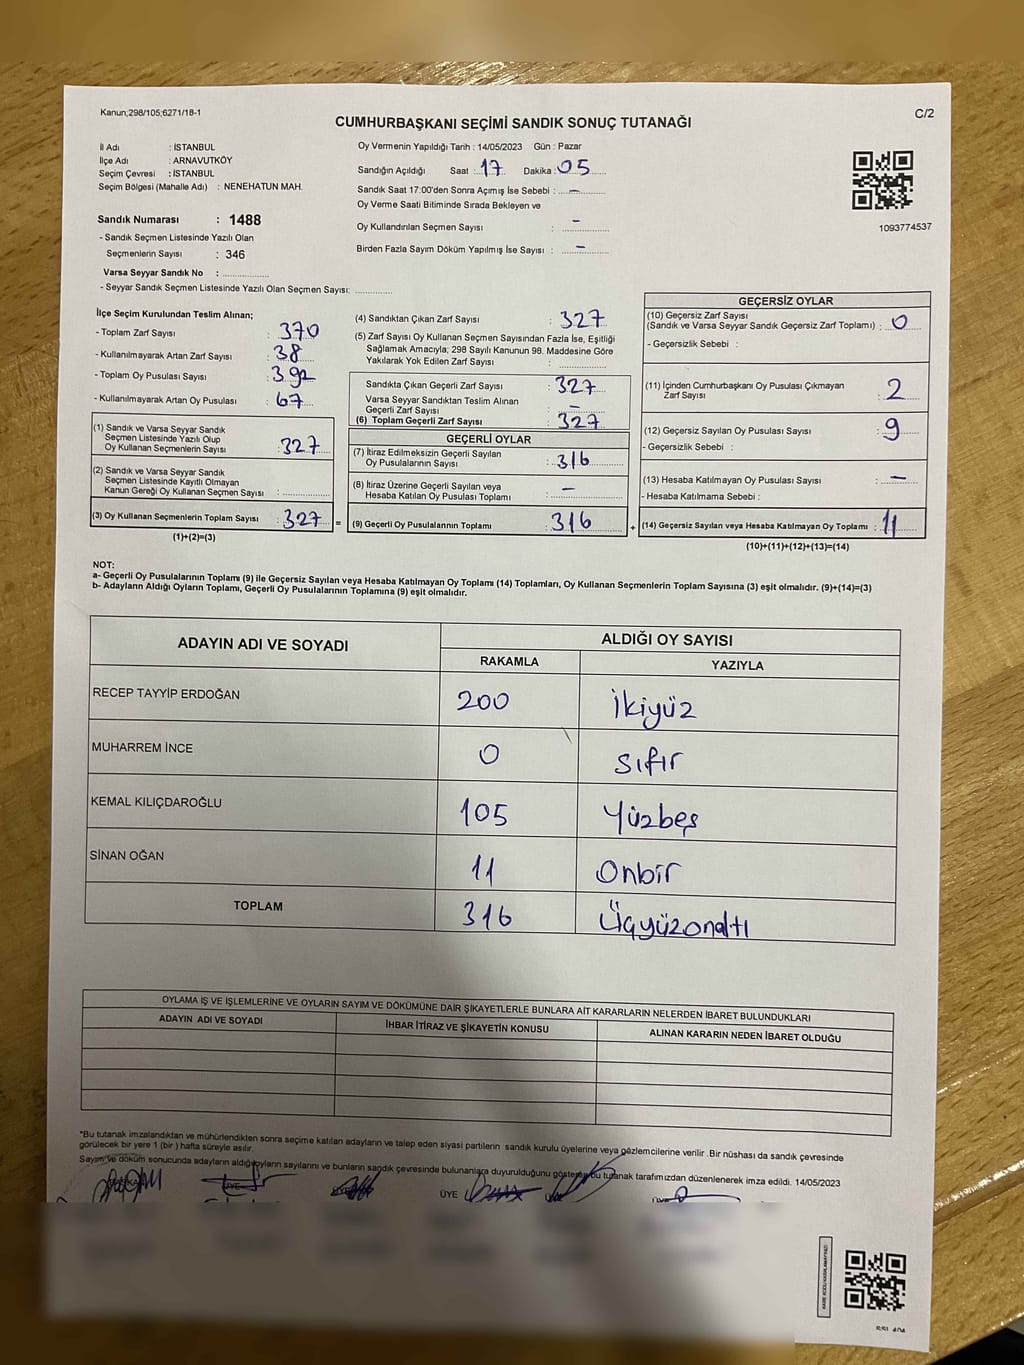 Kanun;298/105;6271/18-1
C/2
CUMHURBAŞKANI SEÇİMİ SANDIK SONUÇ TUTANAĞI
İl Adı : İSTANBUL
İlçe Adı : ARNAVUTKÖY
Seçim Çevresi : İSTANBUL
Seçim Bölgesi (Mahalle Adı) : NENEHATUN MAH.
Sandık Numarası : 1488
- Sandık Seçmen Listesinde Yazılı Olan
Seçmenlerin Sayısı : 346
Varsa Seyyar Sandık No :
- Seyyar Sandık Seçmen Listesinde Yazılı Olan Seçmen Sayısı:
Oy Vermenin Yapıldığı Tarih : 14/05/2023 Gün : Pazar
Sandığın Açıldığı Saat : 17 Dakika : 05
Sandık Saat 17:00'den Sonra Açımış İse Sebebi : -
Oy Verme Saati Bitiminde Sırada Bekleyen ve
Oy Kullandırılan Seçmen Sayısı : -
Birden Fazla Sayım Döküm Yapılmış İse Sayısı : -
1093774537
İlçe Seçim Kurulundan Teslim Alınan;
- Toplam Zarf Sayısı : 370
- Kullanılmayarak Artan Zarf Sayısı : 38
- Toplam Oy Pusulası Sayısı : 392
- Kullanılmayarak Artan Oy Pusulası : 67
(1) Sandık ve Varsa Seyyar Sandık
Seçmen Listesinde Yazılı Olup
Oy Kullanan Seçmenlerin Sayısı : 327
(2) Sandık ve Varsa Seyyar Sandık
Seçmen Listesinde Kayıtlı Olmayan
Kanun Gereği Oy Kullanan Seçmen Sayısı :
(3) Oy Kullanan Seçmenlerin Toplam Sayısı : 327 =
(1)+(2)=(3)
(4) Sandıktan Çıkan Zarf Sayısı : 327
(5) Zarf Sayısı Oy Kullanan Seçmen Sayısından Fazla İse, Eşitliği
Sağlamak Amacıyla; 298 Sayılı Kanunun 98. Maddesine Göre
Yakılarak Yok Edilen Zarf Sayısı :
Sandıkta Çıkan Geçerli Zarf Sayısı : 327
Varsa Seyyar Sandıktan Teslim Alınan
Geçerli Zarf Sayısı : -
(6) Toplam Geçerli Zarf Sayısı : 327
GEÇERLİ OYLAR
(7) İtiraz Edilmeksizin Geçerli Sayılan
Oy Pusulalarının Sayısı : 316
(8) İtiraz Üzerine Geçerli Sayılan veya
Hesaba Katılan Oy Pusulası Toplamı : -
(9) Geçerli Oy Pusulalarının Toplamı : 316 +
GEÇERSİZ OYLAR
(10) Geçersiz Zarf Sayısı
(Sandık ve Varsa Seyyar Sandık Geçersiz Zarf Toplamı) : 0
- Geçersizlik Sebebi :
(11) İçinden Cumhurbaşkanı Oy Pusulası Çıkmayan
Zarf Sayısı : 2
(12) Geçersiz Sayılan Oy Pusulası Sayısı : 9
- Geçersizlik Sebebi :
(13) Hesaba Katılmayan Oy Pusulası Sayısı : -
- Hesaba Katılmama Sebebi :
(14) Geçersiz Sayılan veya Hesaba Katılmayan Oy Toplamı : 11
(10)+(11)+(12)+(13)=(14)
NOT:
a- Geçerli Oy Pusulalarının Toplamı (9) ile Geçersiz Sayılan veya Hesaba Katılmayan Oy Toplamı (14) Toplamları, Oy Kullanan Seçmenlerin Toplam Sayısına (3) eşit olmalıdır. (9)+(14)=(3)
b- Adayların Aldığı Oyların Toplamı, Geçerli Oy Pusulalarının Toplamına (9) eşit olmalıdır.
ADAYIN ADI VE SOYADI
ALDIĞI OY SAYISI
RAKAMLA YAZIYLA
RECEP TAYYİP ERDOĞAN 200 İkiyüz
MUHARREM İNCE 0 sıfır
KEMAL KILIÇDAROĞLU 105 Yüzbeş
SİNAN OĞAN 11 Onbir
TOPLAM 316 Üçyüzonaltı
OYLAMA İŞ VE İŞLEMLERİNE VE OYLARIN SAYIM VE DÖKÜMÜNE DAİR ŞİKAYETLERLE BUNLARA AİT KARARLARIN NELERDEN İBARET BULUNDUKLARI
ADAYIN ADI VE SOYADI İHBAR İTİRAZ VE ŞİKAYETİN KONUSU ALINAN KARARIN NEDEN İBARET OLDUĞU
*Bu tutanak imzalandıktan ve mühürlendikten sonra seçime katılan adayların ve talep eden siyasi partilerin sandık kurulu üyelerine veya gözlemcilerine verilir. Bir nüshası da sandık çevresinde
görülecek bir yere 1 (bir) hafta süreyle asılır.
Sayım ve döküm sonucunda adayların aldığı oyların sayılarını ve bunların sandık çevresinde bulunanlara duyurulduğunu gösteren bu tutanak tarafımızdan düzenlenerek imza edildi. 14/05/2023
ÜYE